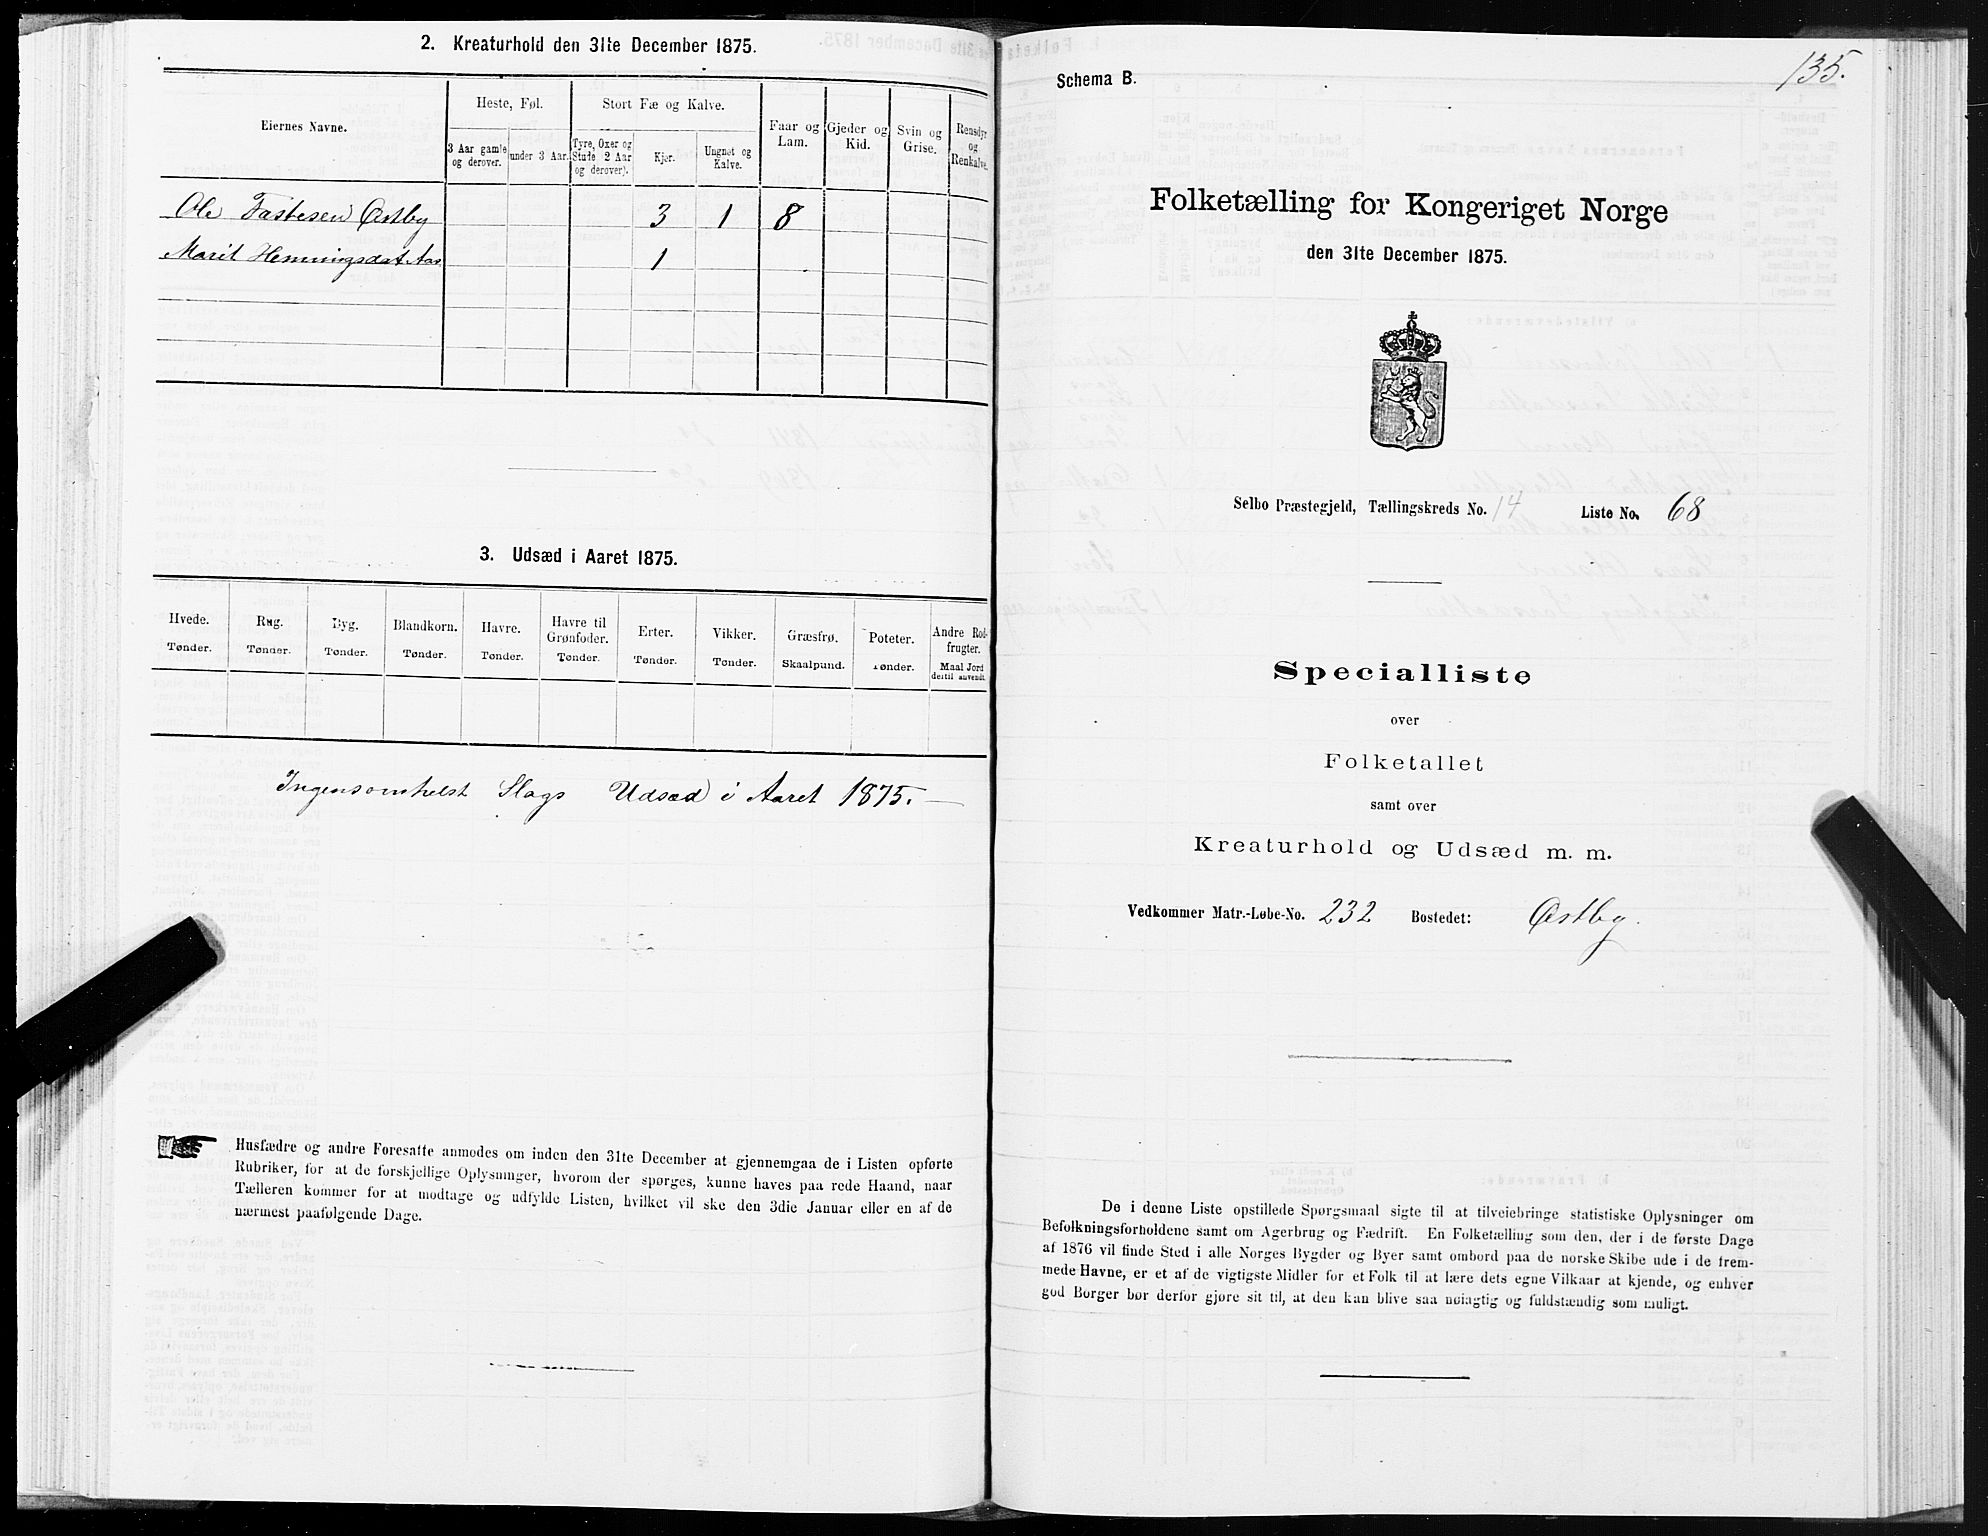 2. Kreaturhold den 31te December 1875.
Eiernes Navne.
Heste, Føl.
Stort Fæ og Kalve.
Faar og Lam.
Gjeder og Kid.
Svin og Grise.
Rensdyr og Renkalve.
3 Aar gamle og derover.
under 3 Aar.
Tyre, Oxer og Stude 2 Aar og derover).
Kjør.
Ungnøt og Kalve.
Ole Fastesen Østby 3 1 8
Marit Henningsdat Aas 1
3. Udsæd i Aaret 1875.
Hvede. Rug. Byg. Blandkorn. Havre. Havre til Grønfoder. Erter. Vikker. Græsfrø. Poteter. Andre Rodfrugter.
Tønder. Tønder. Tønder. Tønder. Tønder. Tønder. Tønder. Tønder. Skaalpund. Tønder. Maal Jord dertil anvendt.
Ingensomhelst Slags Udsæd i Aaret 1875. —
Husfædre og andre Foresatte anmodes om inden den 31te December at gjennemgaa de i Listen opførte
Rubriker, for at de forskjellige Oplysninger, hvorom der spørges, kunne haves paa rede Haand, naar
Tælleren kommer for at modtage og udfylde Listen, hvilket vil ske den 3die Januar eller en af de
nærmest paafølgende Dage.
135.
Schema B.
Folketælling for Kongeriget Norge
den 31te December 1875.
Selbo Præstegjeld, Tællingskreds No. 14 Liste No. 68
Specialliste
over
Folketallet
samt over
Kreaturhold og Udsæd m. m.
Vedkommer Matr.-Løbe-No. 232 Bostedet: Østby.
De i denne Liste opstillede Spørgsmaal sigte til at tilveiebringe statistiske Oplysninger om
Befolkningsforholdene samt om Agerbrug og Fædrift. En Folketælling som den, der i de første Dage
af 1876 vil finde Sted i alle Norges Bygder og Byer samt ombord paa de norske Skibe ude i de frem-
mede Havne, er et af de vigtigste Midler for et Folk til at lære dets egne Vilkaar at kjende, og enhver
god Borger bør derfor gjøre sit til, at den kan blive saa nøiagtig og fuldstændig som muligt.